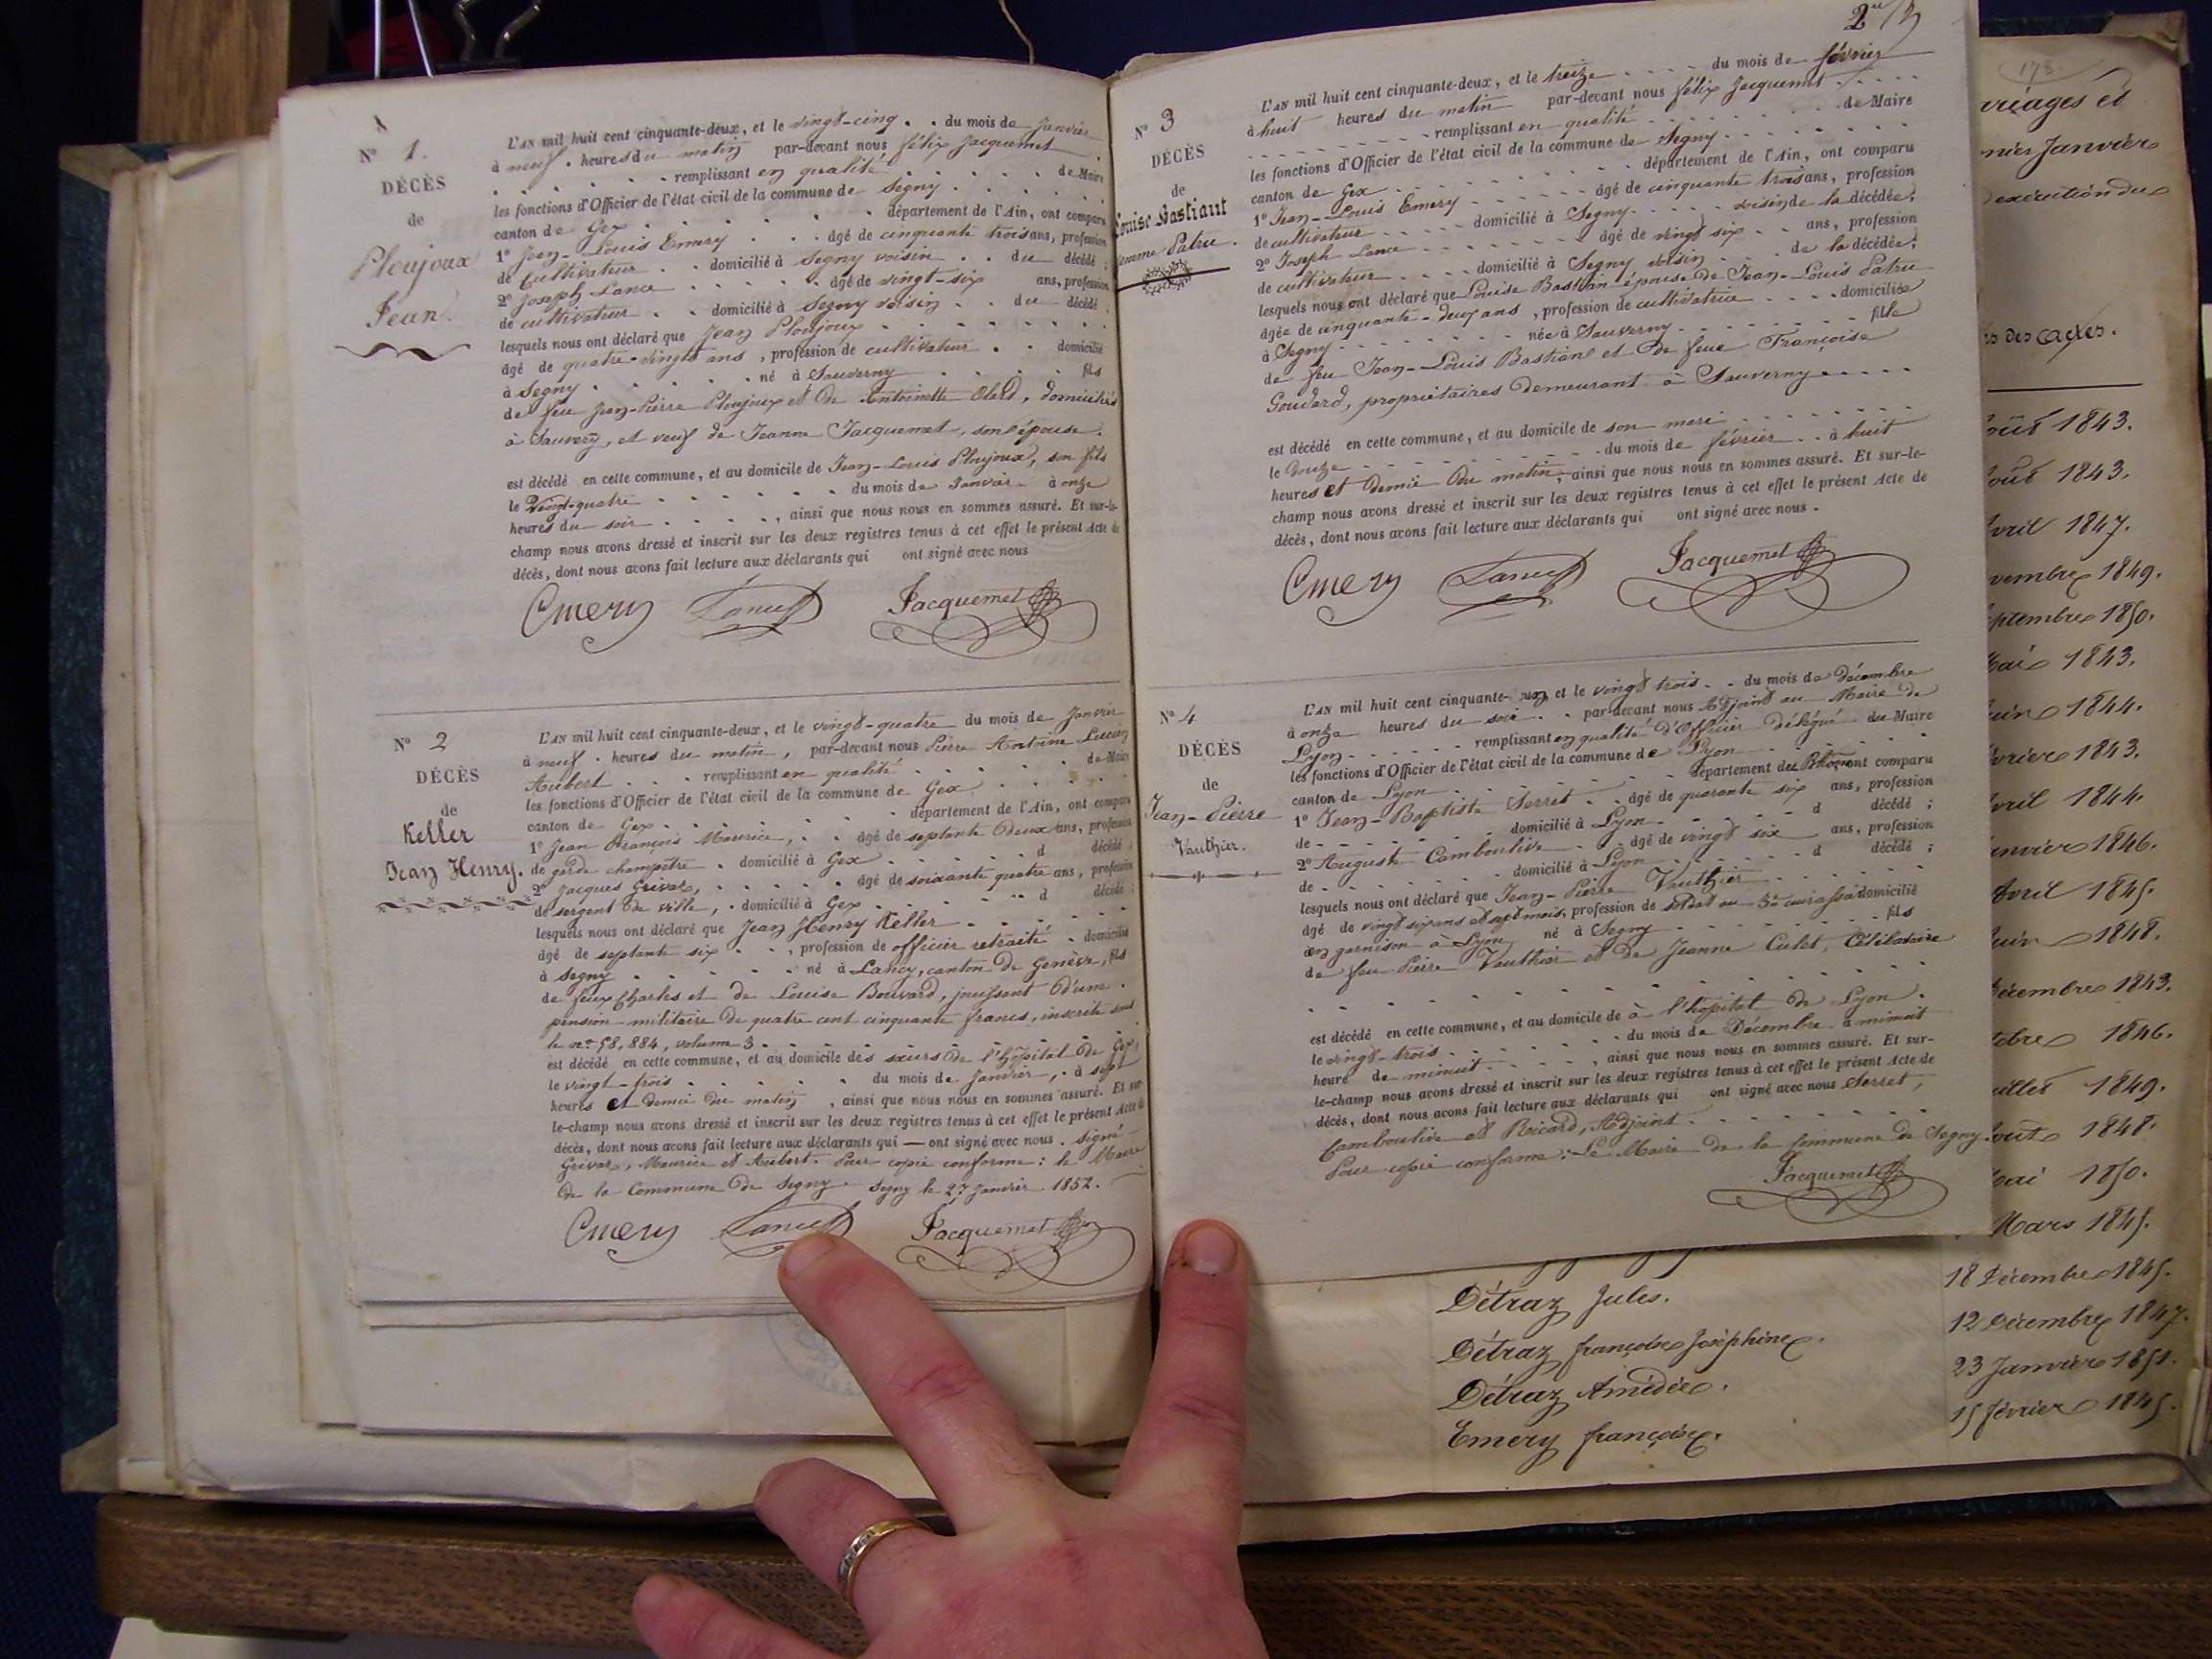 N° 1.
DÉCÈS
de
Ploujoux
Jean.
L'AN mil huit cent cinquante-deux, et le vingt-cinq . . du mois de Janvier
à neuf . heures du matin par-devant nous félix Jacquemet .
. . . . . . remplissant en qualité . . . . . de Maire
les fonctions d'Officier de l'état civil de la commune de Segny . . . .
canton de Gex . . . . . . département de l'Ain, ont comparu
1° Jean-Louis Emery . . . âgé de cinquante trois ans, profession
de Cultivateur . . domicilié à Segny voisin . . du décédé ;
2° Joseph Lance . . . . . âgé de vingt-six ans, profession
de cultivateur . . domicilié à Segny voisin . . du décédé .
lesquels nous ont déclaré que Jean Ploujoux . . . . . . .
âgé de quatre-vingts ans , profession de cultivateur . . domicilié
à Segny . . . . . . né à Sauverny . . . . . fils
de feu Jean-Pierre Ploujoux et de Antoinette , domiciliés
à Sauverny, et veuf de Jeanne Jacquemet, son épouse.
est décédé en cette commune, et au domicile de Jean-Louis Ploujoux, son fils
le Vingt-quatre . . . . . . . du mois de Janvier - à onze
heures du soir . . . . . , ainsi que nous nous en sommes assuré. Et sur-le-
champ nous avons dressé et inscrit sur les deux registres tenus à cet effet le présent Acte de
décès, dont nous avons fait lecture aux déclarants qui ont signé avec nous
Emery Lance Jacquemet
N° 2
DÉCÈS
de
Keller
Jean Henry.
L'AN mil huit cent cinquante-deux, et le vingt-quatre du mois de Janvier
à neuf . heures du matin, par-devant nous Pierre Antoine
Aubert . . . remplissant en qualité . . . . . de Maire
les fonctions d'Officier de l'état civil de la commune de Gex . . . . .
canton de Gex . . . . . . département de l'Ain, ont comparu
1° Jean François Maurice, . . âgé de septante deux ans, profession
de garde champêtre . domicilié à Gex . . . . . d décédé ;
2° Jacques Grivas, . . . . . âgé de soixante quatre ans, profession
de sergent de ville, . domicilié à Gex . . . . . d décédé ;
lesquels nous ont déclaré que Jean Henry Keller . . . . . .
âgé de septante six . . , profession de officier retraité . domicilié
à Segny . . . . . . né à Lancy, canton de Genève, fils
de feux Charles et de Louise Bouvard, jouissant d'une .
pension militaire de quatre cent cinquante francs, inscrite sous
le n° 58,884, volume 3 . . . . .
est décédé en cette commune, et au domicile des sœurs de l'hôpital de Gex,
le vingt-trois . . . . . . du mois de Janvier, . à sept
heures et demie du matin , ainsi que nous nous en sommes assuré. Et sur-
le-champ nous avons dressé et inscrit sur les deux registres tenus à cet effet le présent Acte de
décès, dont nous avons fait lecture aux déclarants qui — ont signé avec nous . signé
Grivas, Maurice et Aubert. Pour copie conforme : le Maire
de la Commune de Segny. Segny le 27 Janvier 1852.
Emery Lance Jacquemet
N° 3
DÉCÈS
de
Louise Bastiant
femme Patru.
L'AN mil huit cent cinquante-deux, et le treize . . . . du mois de février
à huit heures du matin par-devant nous félix Jacquemet . . . . .
. . . . . . . remplissant en qualité . . . . . . . de Maire
les fonctions d'Officier de l'état civil de la commune de Segny . . . . .
canton de Gex . . . . . . . département de l'Ain, ont comparu
1° Jean-Louis Emery . . . . . âgé de cinquante trois ans, profession
de cultivateur . . . . . domicilié à Segny . . . . voisin de la décédée ;
2° Joseph Lance . . . . . . . âgé de vingt six . . ans, profession
de cultivateur . . . . domicilié à Segny voisin . . . de la décédée ;
lesquels nous ont déclaré que Louise Bastian épouse de Jean-Louis Patru
âgée de cinquante-deux ans , profession de cultivatrice . . . . domiciliée
à Segny . . . . . . . née à Sauverny . . . . . . . fille
de feu Jean-Louis Bastian et de feue Françoise
Goudard, propriétaires demeurant à Sauverny . . . . .
est décédé en cette commune, et au domicile de son mari . . . . . . .
le douze . . . . . . . . . du mois de février . . à huit
heures et demie du matin, ainsi que nous nous en sommes assuré. Et sur-le-
champ nous avons dressé et inscrit sur les deux registres tenus à cet effet le présent Acte de
décès, dont nous avons fait lecture aux déclarants qui ont signé avec nous .
Emery Lance Jacquemet
N° 4
DÉCÈS
de
Jean-Pierre
Vauthier.
L'AN mil huit cent cinquante- un et le vingt trois . . du mois de décembre
à onze heures du soir . . par-devant nous Adjoint au Maire de
Lyon . . . . . . remplissant en qualité d'Officier délégué du Maire
les fonctions d'Officier de l'état civil de la commune de Lyon . . . . . .
canton de Lyon . . . . . . département du Rhône ont comparu
1° Jean-Baptiste Serret . . âgé de quarante six ans, profession
de . . . . . . domicilié à Lyon . . . . . d décédé ;
2° Auguste Camboulive . . âgé de vingt six ans, profession
de . . . . . . domicilié à Lyon . . . . . d décédé ;
lesquels nous ont déclaré que Jean-Pierre Vauthier . . . . . .
âgé de vingt six ans et sept mois, profession de soldat au domicilié
en garnison à Lyon, né à Segny . . . . . . . fils
de feu Pierre Vauthier et de Jeanne Culet, Célibataire
est décédé en cette commune, et au domicile de à l'hôpital de Lyon .
le vingt-trois . . . . . . . du mois de Décembre à minuit
heure de minuit . . . . , ainsi que nous nous en sommes assuré. Et sur-
le-champ nous avons dressé et inscrit sur les deux registres tenus à cet effet le présent Acte de
décès, dont nous avons fait lecture aux déclarants qui ont signé avec nous Serret,
Camboulive et Ricard, Adjoint . . . . . . .
Pour copie conforme : Le Maire de la Commune de Segny.
Jacquemet
178.
mariages et
Janvier
exécution du
des actes.
août 1843.
août 1843.
avril 1847.
novembre 1849.
septembre 1850.
Mai 1843.
Juin 1844.
février 1843.
avril 1844.
Janvier 1846.
Avril 1845.
Juin 1848.
Décembre 1843.
octobre 1846.
Juillet 1849.
août 1848.
Mai 1850.
Mars 1845.
18 Décembre 1845.
Détraz Jules.
12 Décembre 1847.
Détraz françoise Joséphine.
23 Janvier 1851.
Détraz Amédée.
15 février 1845.
Emery françoise.